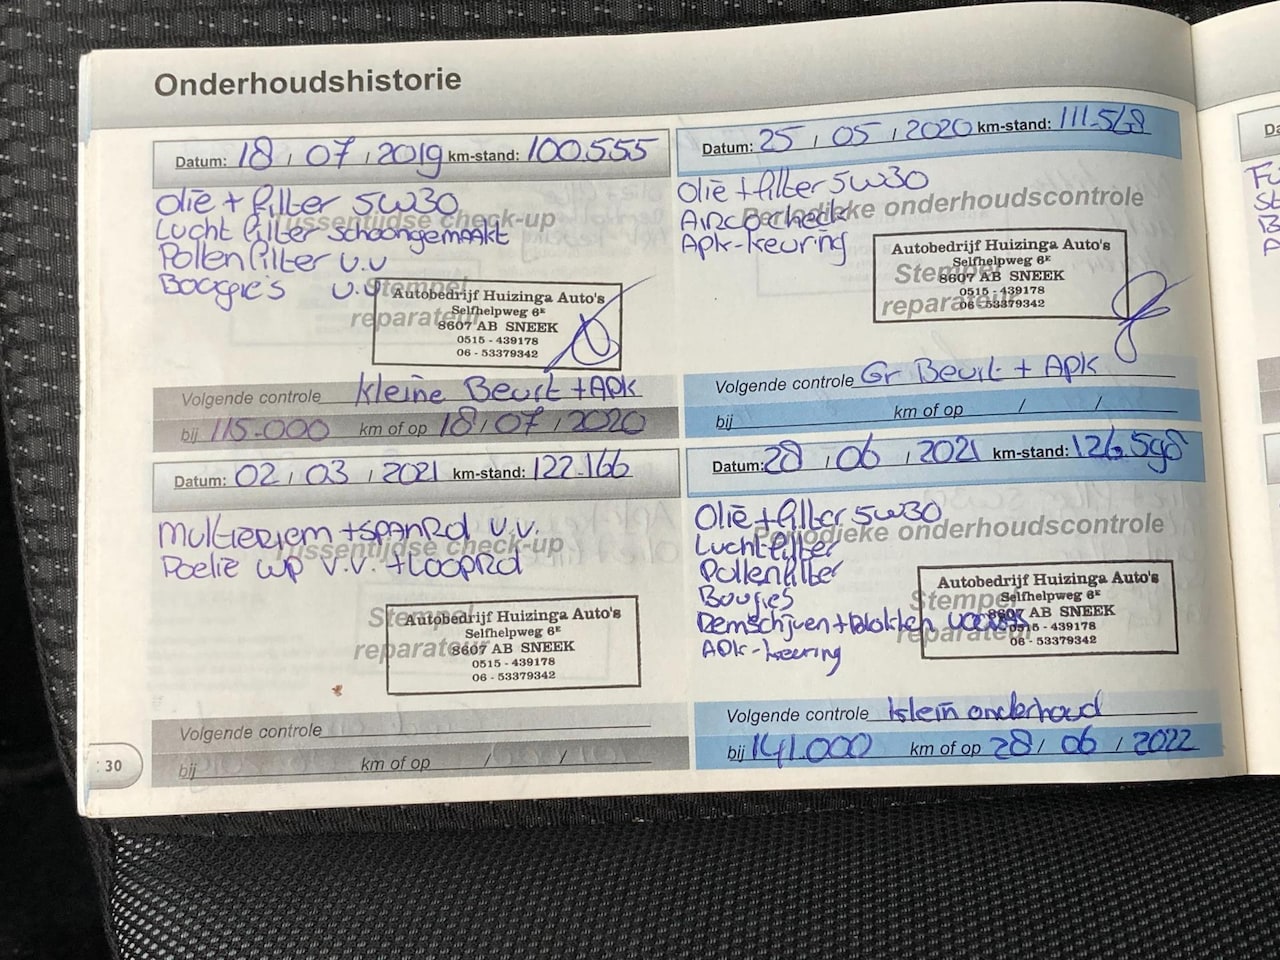 Onderhoudshistorie
Datum: 18 / 07 / 2019 km-stand: 100.555
Olie + filter 5W30
Tussentijdse check-up
Lucht filter schoongemaakt
Pollenfilter v.v
Bougies v.v
Stempel
reparateur
Autobedrijf Huizinga Auto's
Selfhelpweg 6ᴱ
8607 AB SNEEK
0515 - 439178
06 - 53379342
Volgende controle Kleine Beurt + APK
bij 115.000 km of op 18 / 07 / 2020
Datum: 25 / 05 / 2020 km-stand: 111.568
Olie + filter 5W30
Periodieke onderhoudscontrole
Airco check
Apk-keuring
Stempel
reparateur
Autobedrijf Huizinga Auto's
Selfhelpweg 6ᴱ
8607 AB SNEEK
0515 - 439178
06 - 53379342
Volgende controle Gr Beurt + Apk
bij km of op / /
Datum: 02 / 03 / 2021 km-stand: 122.166
Multieriem + spanrol v.v.
Tussentijdse check-up
Poelie WP v.v. + Looprol
Stempel
reparateur
Autobedrijf Huizinga Auto's
Selfhelpweg 6ᴱ
8607 AB SNEEK
0515 - 439178
06 - 53379342
Volgende controle
bij km of op / /
Datum: 28 / 06 / 2021 km-stand: 126.598
Olie + filter 5W30
Periodieke onderhoudscontrole
Luchtfilter
Pollenfilter
Bougies
Remschijven + blokken
APK-keuring
Stempel
reparateur
Autobedrijf Huizinga Auto's
Selfhelpweg 6ᴱ
8607 AB SNEEK
0515 - 439178
06 - 53379342
Volgende controle klein onderhoud
bij 141.000 km of op 28 / 06 / 2022
30